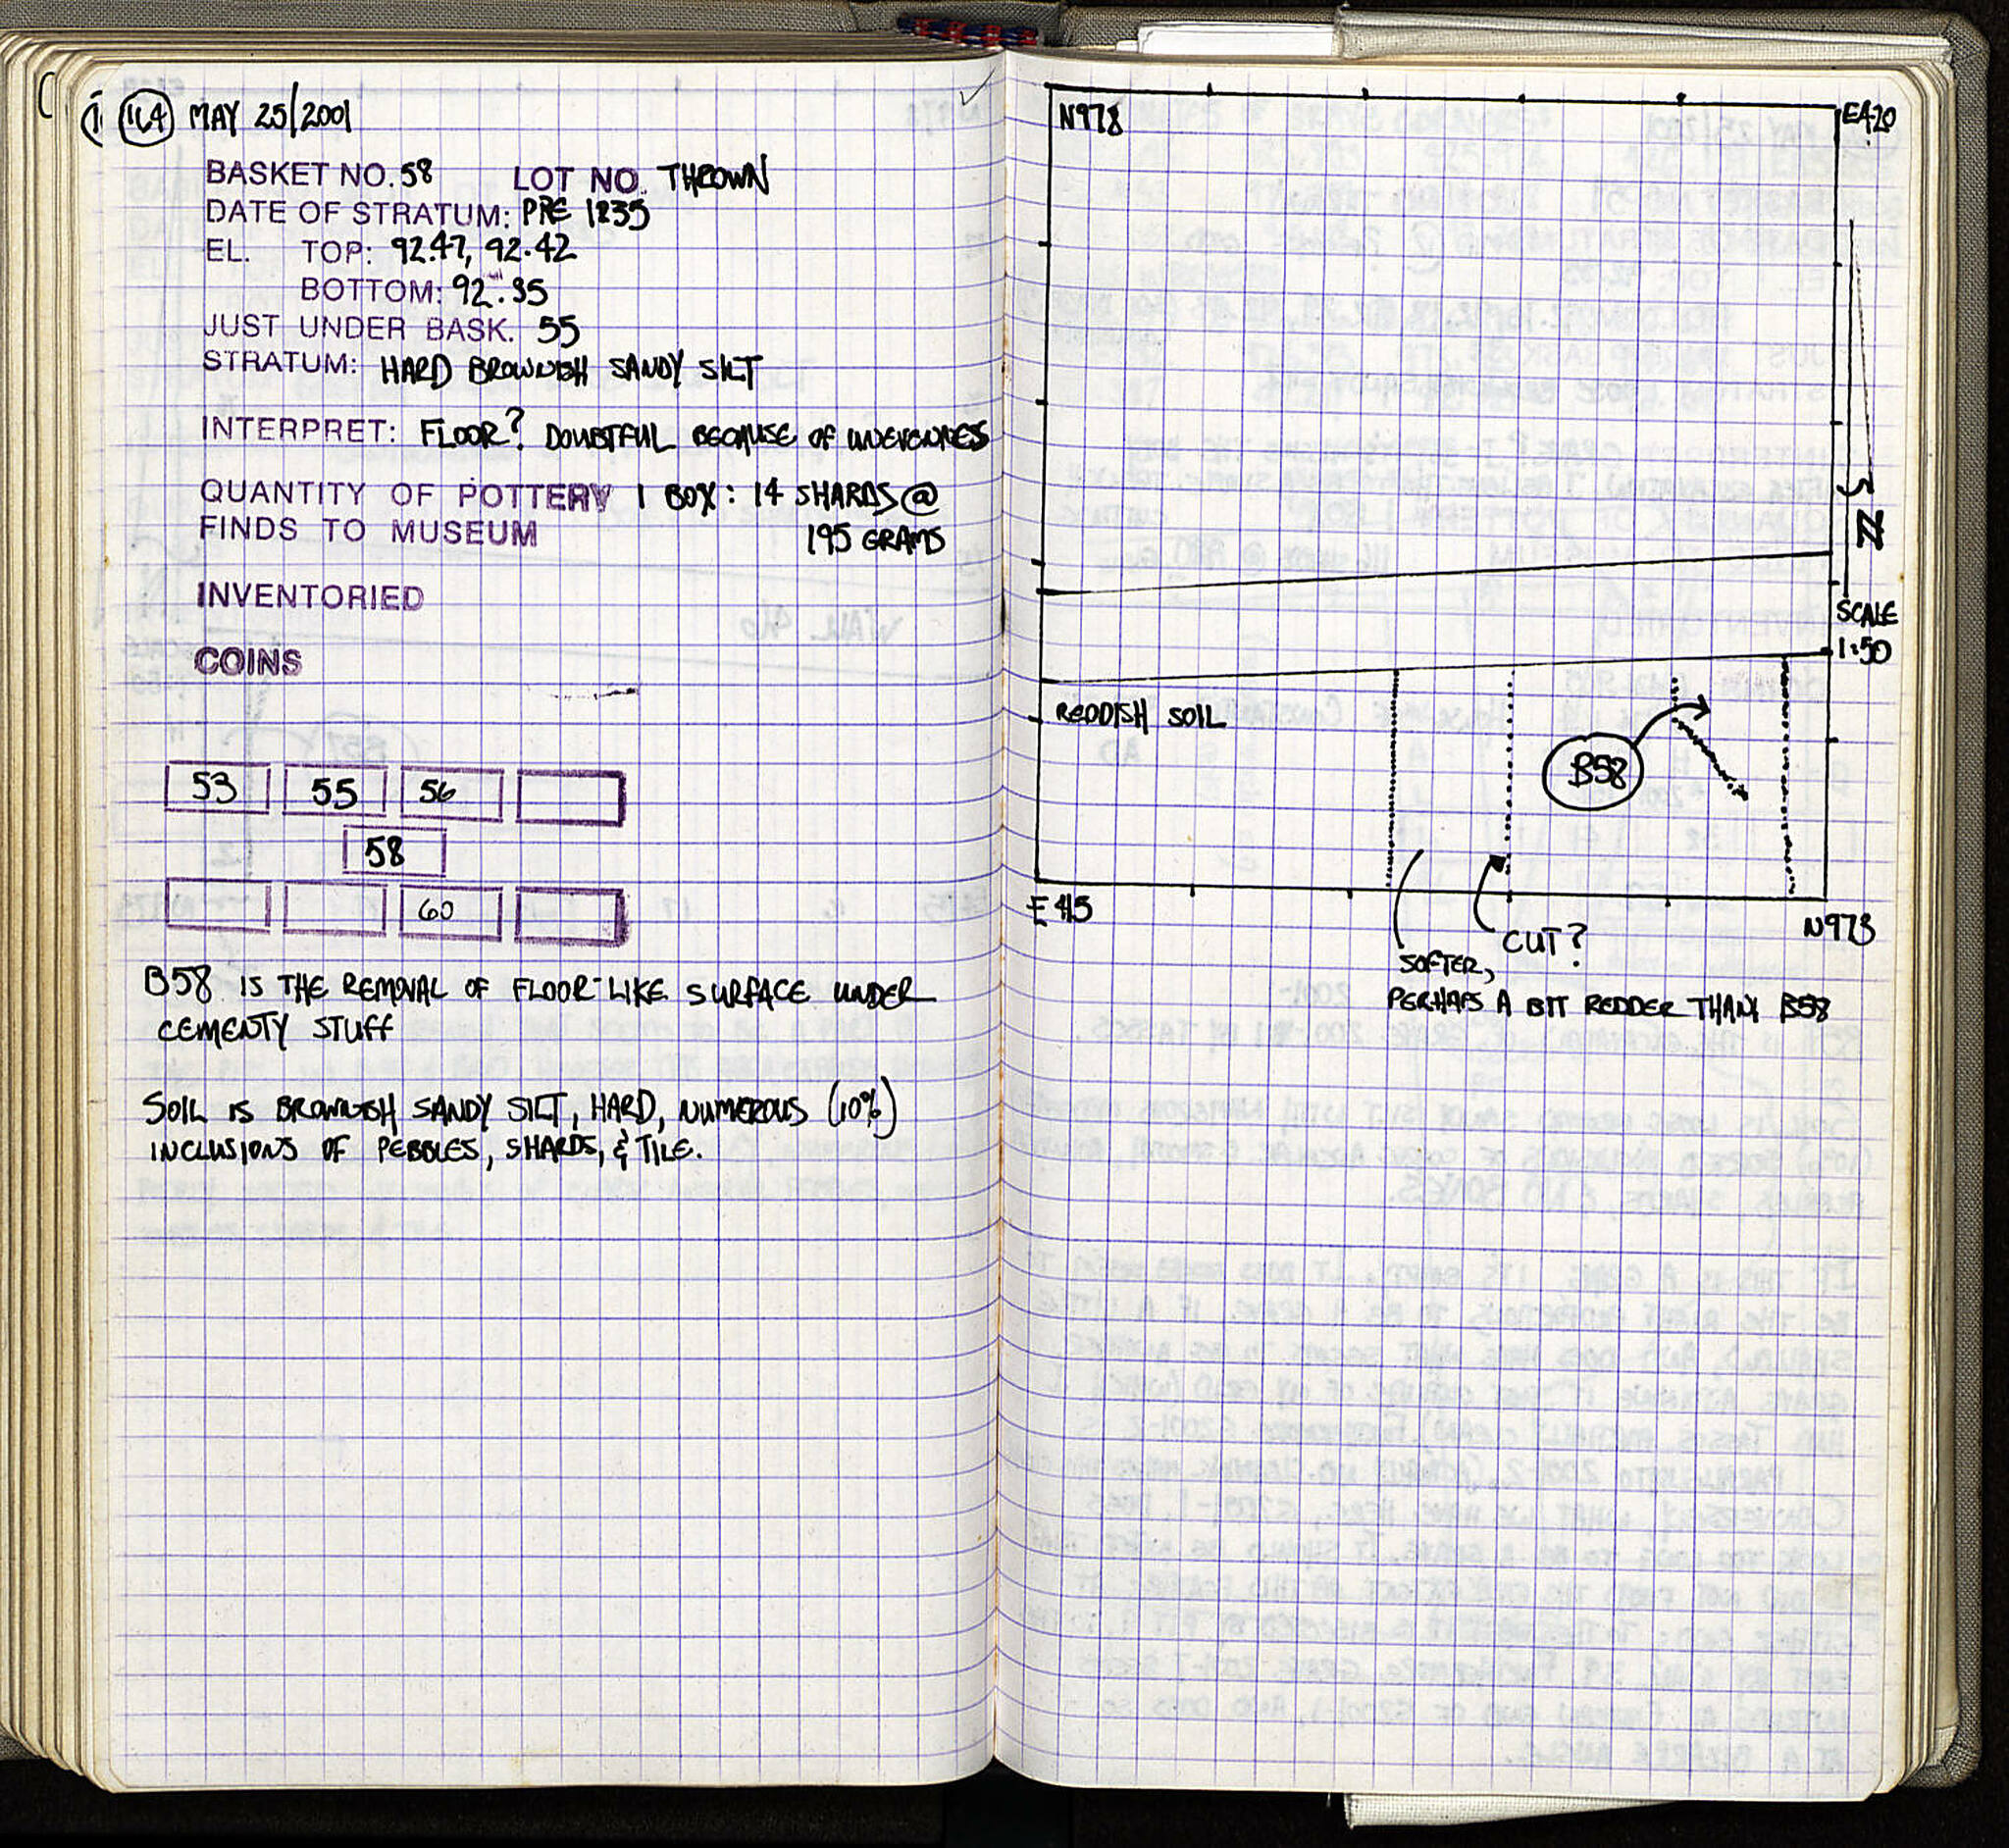 164 MAY 25/2001
BASKET NO. 58 LOT NO. THROWN
DATE OF STRATUM: PRE 1835
EL. TOP: 92.47, 92.42
BOTTOM: 92.35
JUST UNDER BASK. 55
STRATUM: HARD BROWNISH SANDY SILT
INTERPRET: FLOOR? DOUBTFUL BECAUSE OF UNEVENNES
QUANTITY OF POTTERY 1 BOX: 14 SHARDS @
FINDS TO MUSEUM 195 GRAMS
INVENTORIED
COINS
53 55 56
58
60
B58 IS THE REMOVAL OF FLOOR-LIKE SURFACE UNDER
CEMENTY STUFF
SOIL IS BROWNISH SANDY SILT, HARD, NUMEROUS (10%)
INCLUSIONS OF PEBBLES, SHARDS, & TILE.
N978 E420
N
SCALE
1:50
REDDISH SOIL
B58
E415 N973
CUT?
SOFTER,
PERHAPS A BIT REDDER THAN B58